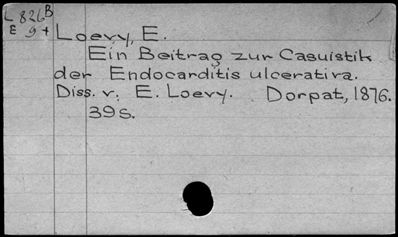 L 826 B
E 9+
Loevy, E.
Ein Beitrag zur Casuistik
der Endocarditis ulcerativa.
Diss. v. E. Loevy. Dorpat, 1876.
39 s.